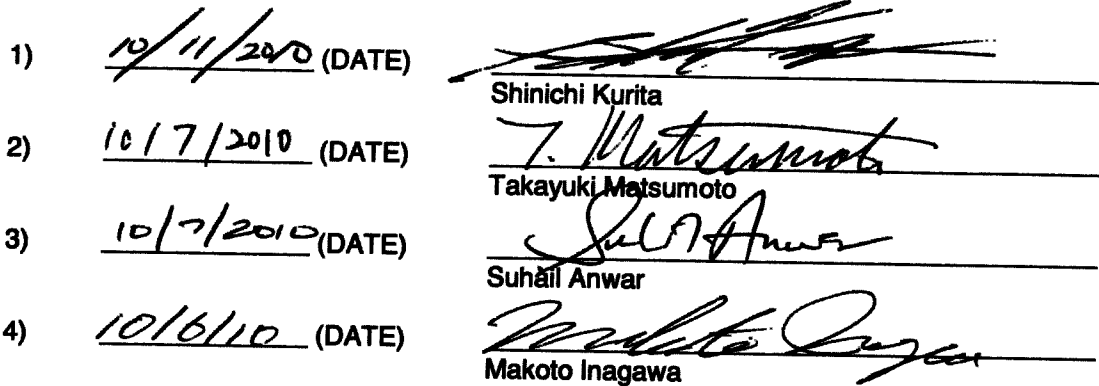 1) 10/11/2010 (DATE)
Shinichi Kurita
2) 10/7/2010 (DATE) T. Matsumoto
Takayuki Matsumoto
3) 10/7/2010 (DATE) Suhail Anwar
Suhail Anwar
4) 10/6/10 (DATE) Makoto Inagawa
Makoto Inagawa